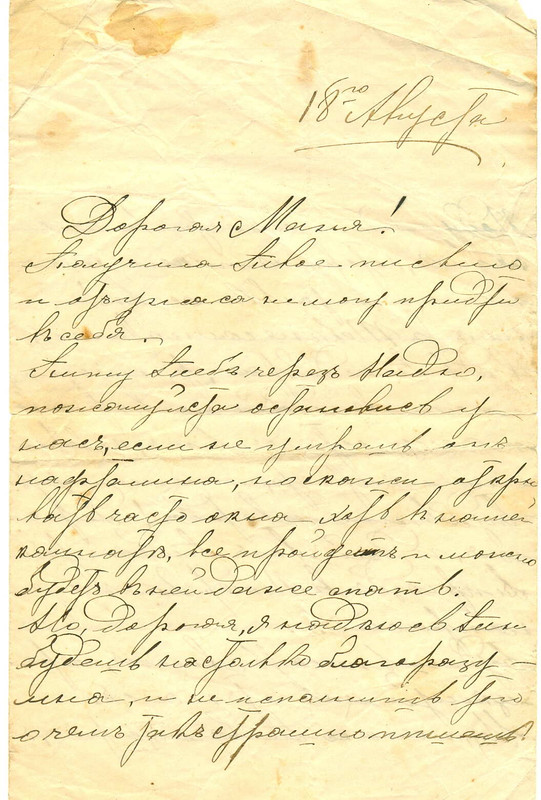 18го Августа
Дорогая Маня!
Получила твое письмо
и отъ ужаса не могу придти
въ себя.
Пишу тебѣ черезъ Надю,
пожалуйста остановись у
насъ, если не умрешь отъ
нафталина, но скажи откры
вать часто окна хоть въ нашей
комнатѣ, все пройдетъ и можно
будетъ въ ней даже спать.
Но, дорогая, я надѣюсь ты
будешь настолько благоразу-
мна, и не исполнишь того
о чемъ такъ страшно пишешь.